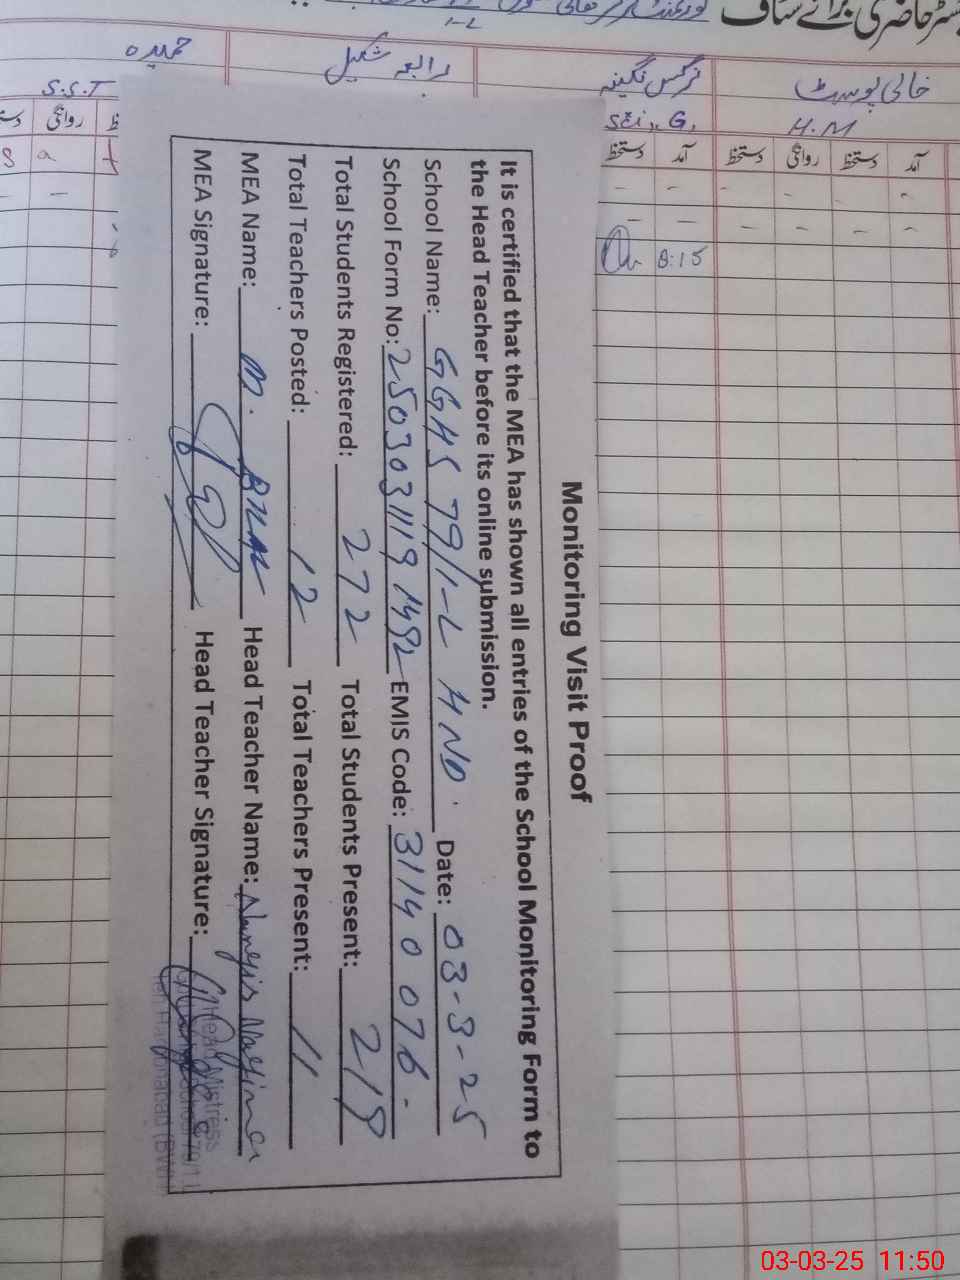 حاضری برائے سٹاف
1-L
خالی پوسٹ
نرگس نگینہ
رابعہ شکیل
حمیدہ
H.M
Sci, G,
S.S.T
آمد
دستخط
روانگی
دستخط
آمد
دستخط
روانگی
8:15
Monitoring Visit Proof
It is certified that the MEA has shown all entries of the School Monitoring Form to
the Head Teacher before its online submission.
School Name: GGHS 79/1-L HND. Date: 03-3-25
School Form No: 25030311191492 EMIS Code: 31140076-
Total Students Registered: 272 Total Students Present: 219
Total Teachers Posted: 12 Total Teachers Present: 11
MEA Name: M. Bilal Head Teacher Name: Nargis Nagina
MEA Signature: Head Teacher Signature:
Head Mistress
03-03-25 11:50